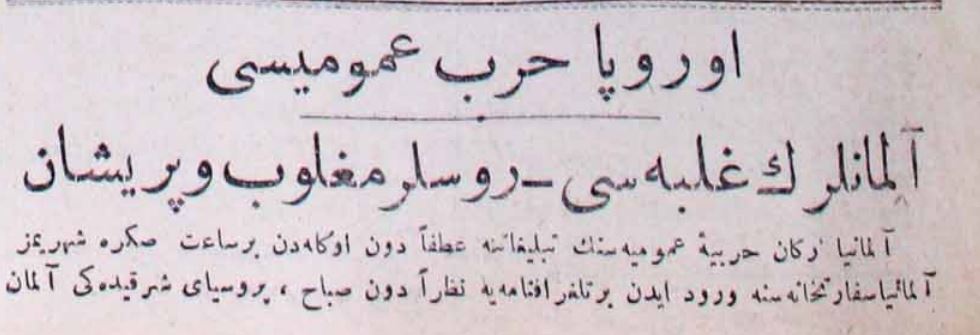 اوروپا حرب عمومیسی
آلمانلرك غلبه سی ــ روسلر مغلوب و پریشان
آلمانیا ارکان حربیهٔ عمومیه سنك تبلیغاتنه عطفاً دون اوکله دن برساعت صکره شهریمز
آلمانیا سفارتخانه سنه ورود ایدن بر تلغرافنامه یه نظراً دون صباح ، پروسیای شرقیده کی آلمان